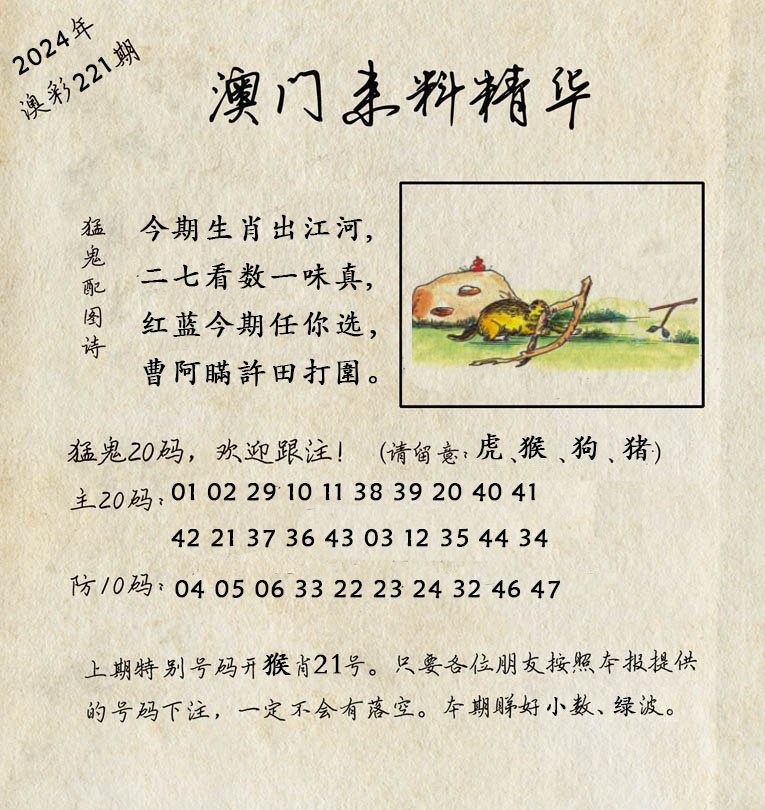 2024年
澳彩221期
澳门来料精华
猛鬼配图诗
今期生肖出江河，
二七看数一味真，
红蓝今期任你选，
曹阿瞒許田打圍。
猛鬼20码，欢迎跟注！（请留意：虎、猴、狗、猪）
主20码：01 02 29 10 11 38 39 20 40 41
42 21 37 36 43 03 12 35 44 34
防10码：04 05 06 33 22 23 24 32 46 47
上期特别号码开猴肖21号。只要各位朋友按照本报提供
的号码下注，一定不会有落空。本期睇好小数、绿波。